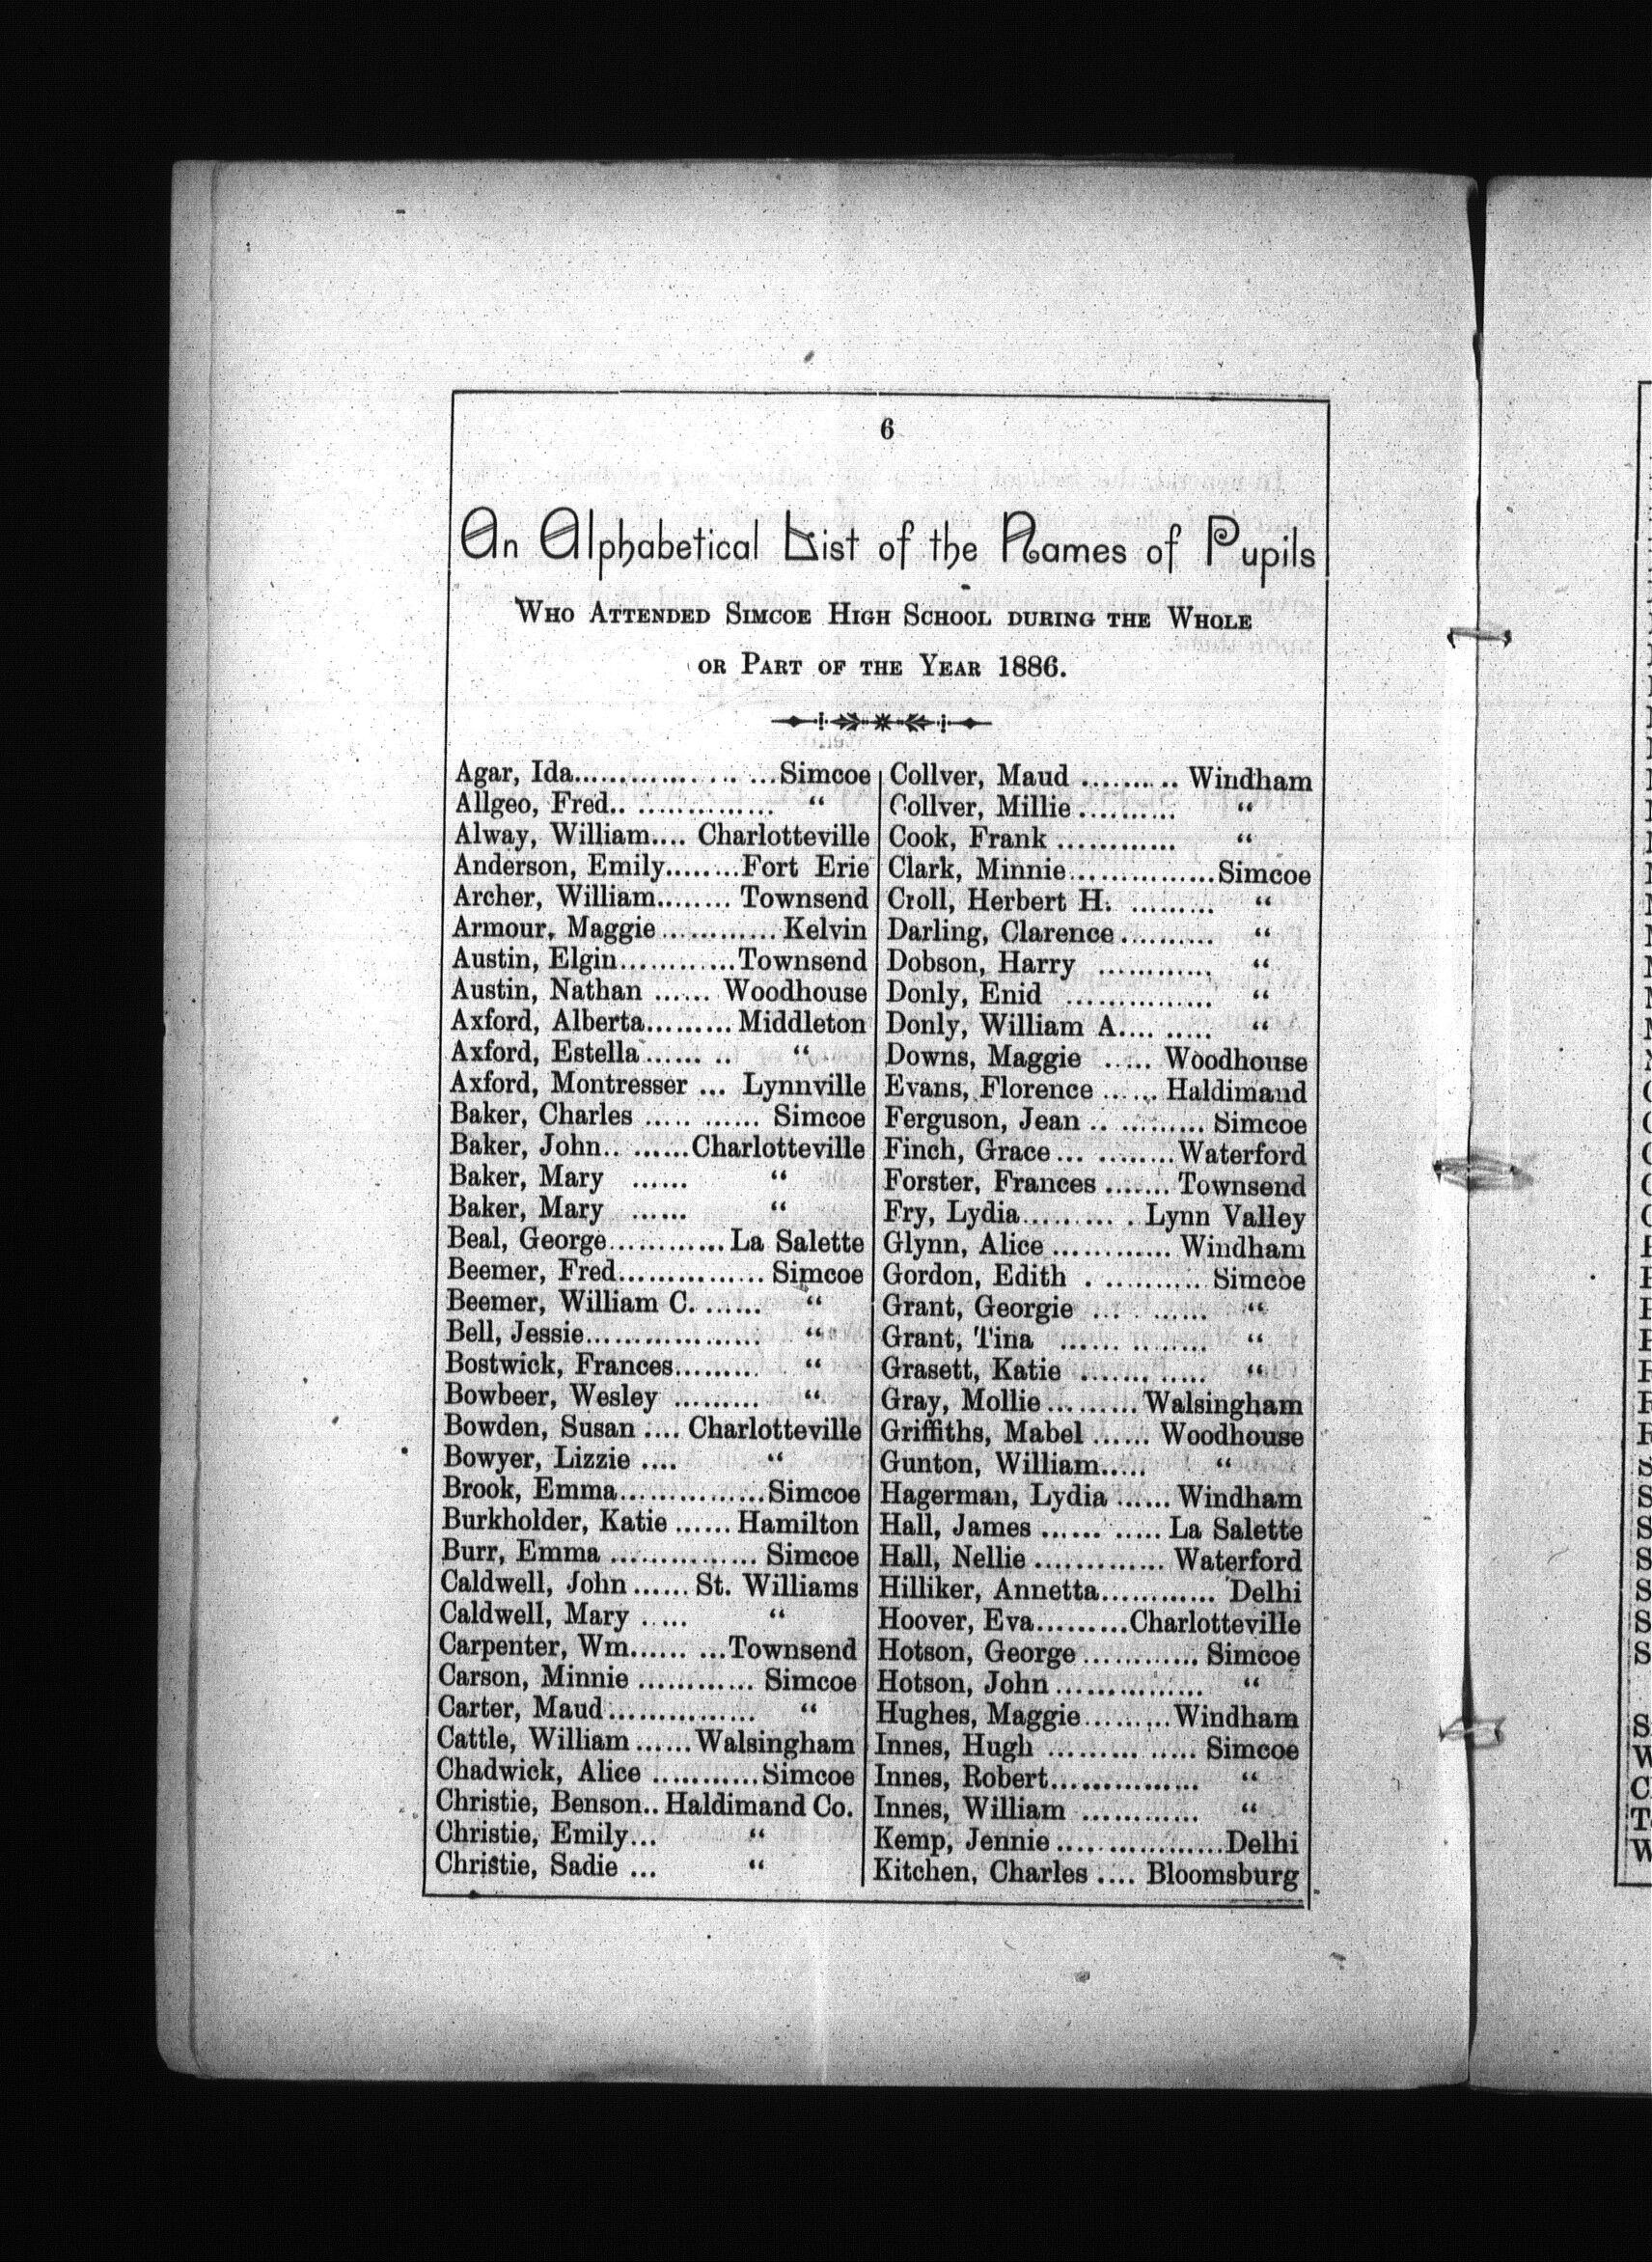 6
An Alphabetical List of the Names of Pupils
Who Attended Simcoe High School during the Whole
or Part of the Year 1886.
Agar, Ida.....................Simcoe
Allgeo, Fred.. .............. “
Alway, William.... Charlotteville
Anderson, Emily........Fort Erie
Archer, William........ Townsend
Armour, Maggie............ Kelvin
Austin, Elgin............Townsend
Austin, Nathan ...... Woodhouse
Axford, Alberta......... Middleton
Axford, Estella...... .. “
Axford, Montresser ... Lynnville
Baker, Charles ..... ...... Simcoe
Baker, John.. ......Charlotteville
Baker, Mary ...... “
Baker, Mary ...... “
Beal, George............La Salette
Beemer, Fred............... Simcoe
Beemer, William C. ...... “
Bell, Jessie.................. “
Bostwick, Frances......... “
Bowbeer, Wesley ......... “
Bowden, Susan .... Charlotteville
Bowyer, Lizzie .... “
Brook, Emma...............Simcoe
Burkholder, Katie ...... Hamilton
Burr, Emma ............... Simcoe
Caldwell, John ...... St. Williams
Caldwell, Mary ..... “
Carpenter, Wm...... ...Townsend
Carson, Minnie ............ Simcoe
Carter, Maud............... “
Cattle, William ......Walsingham
Chadwick, Alice ...........Simcoe
Christie, Benson.. Haldimand Co.
Christie, Emily... “
Christie, Sadie ... “
Collver, Maud .......... Windham
Collver, Millie.......... “
Cook, Frank ............ “
Clark, Minnie...............Simcoe
Croll, Herbert H. ......... “
Darling, Clarence.......... “
Dobson, Harry ............ “
Donly, Enid ............... “
Donly, William A.... ..... “
Downs, Maggie ..... Woodhouse
Evans, Florence ...... Haldimand
Ferguson, Jean .. ......... Simcoe
Finch, Grace ... .........Waterford
Forster, Frances ....... Townsend
Fry, Lydia......... . Lynn Valley
Glynn, Alice ............ Windham
Gordon, Edith . .......... Simcoe
Grant, Georgie ... . ...... “
Grant, Tina ...... ........ “
Grasett, Katie ............. “
Gray, Mollie......... Walsingham
Griffiths, Mabel ...... Woodhouse
Gunton, William..... “
Hagerman, Lydia ...... Windham
Hall, James ...... ..... La Salette
Hall, Nellie ............. Waterford
Hilliker, Annetta............ Delhi
Hoover, Eva.........Charlotteville
Hotson, George ............ Simcoe
Hotson, John............... “
Hughes, Maggie.........Windham
Innes, Hugh ......... ..... Simcoe
Innes, Robert............... “
Innes, William ............ “
Kemp, Jennie .................Delhi
Kitchen, Charles .... Bloomsburg